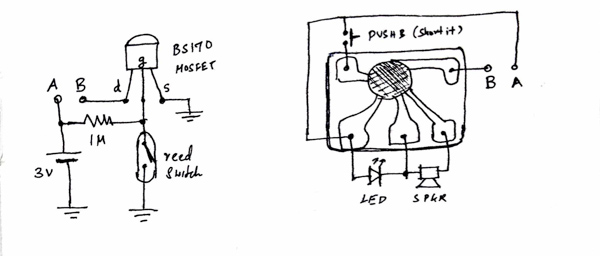 BS170
MOSFET
g
A B d s
1M
3V
reed
switch
PUSH B (Short it)
B A
LED SPKR